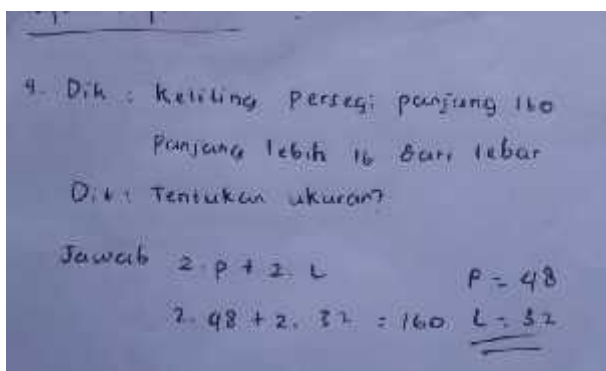 9. Dik : Keliling persegi panjang 160
Panjang lebih 16 dari lebar
Dit : Tentukan ukuran?
Jawab 2.P + 2. L
P = 48
2. 48 + 2. 32 = 160 L = 32